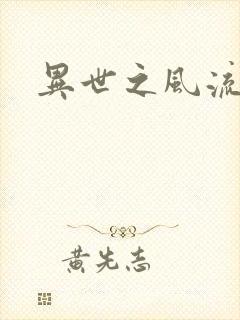 異世之風流
黃先志